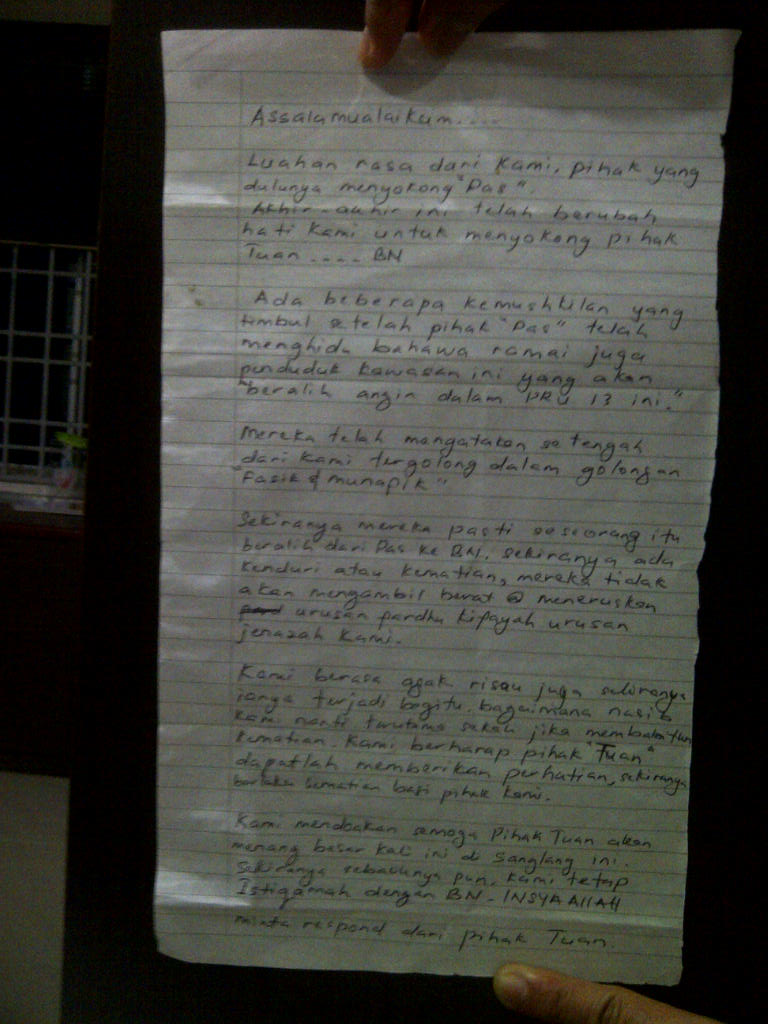 Assalamualaikum....
Luahan rasa dari kami, pihak yang
dulunya menyokong "Pas".
Akhir-akhir ini telah berubah
hati kami untuk menyokong pihak
Tuan .... BN
Ada beberapa kemushkilan yang
timbul setelah pihak "Pas" telah
menghidu bahawa ramai juga
penduduk kawasan ini yang akan
"beralih angin dalam PRU 13 ini."
Mereka telah mengatakan setengah
dari kami tergolong dalam golongan
"Fasik & munapik"
Sekiranya mereka pasti seseorang itu
beralih dari Pas ke BN, sekiranya ada
kenduri atau kematian, mereka tidak
akan mengambil berat @ meneruskan
urusan pardhu kipayah urusan
jenazah kami.
Kami berasa agak risau juga sekiranya
ianya terjadi begitu. bagaimana nasib
kami nanti terutama sekali jika membabitkan
kematian. Kami berharap pihak "Tuan"
dapatlah memberikan perhatian, sekiranya
berlaku kematian bagi pihak kami.
Kami mendoakan semoga Pihak Tuan akan
menang besar kali ini di Sanglang ini.
Sekiranya sebaliknya pun, kami tetap
Istiqamah dengan BN - INSYAALLAH
minta respond dari pihak Tuan.